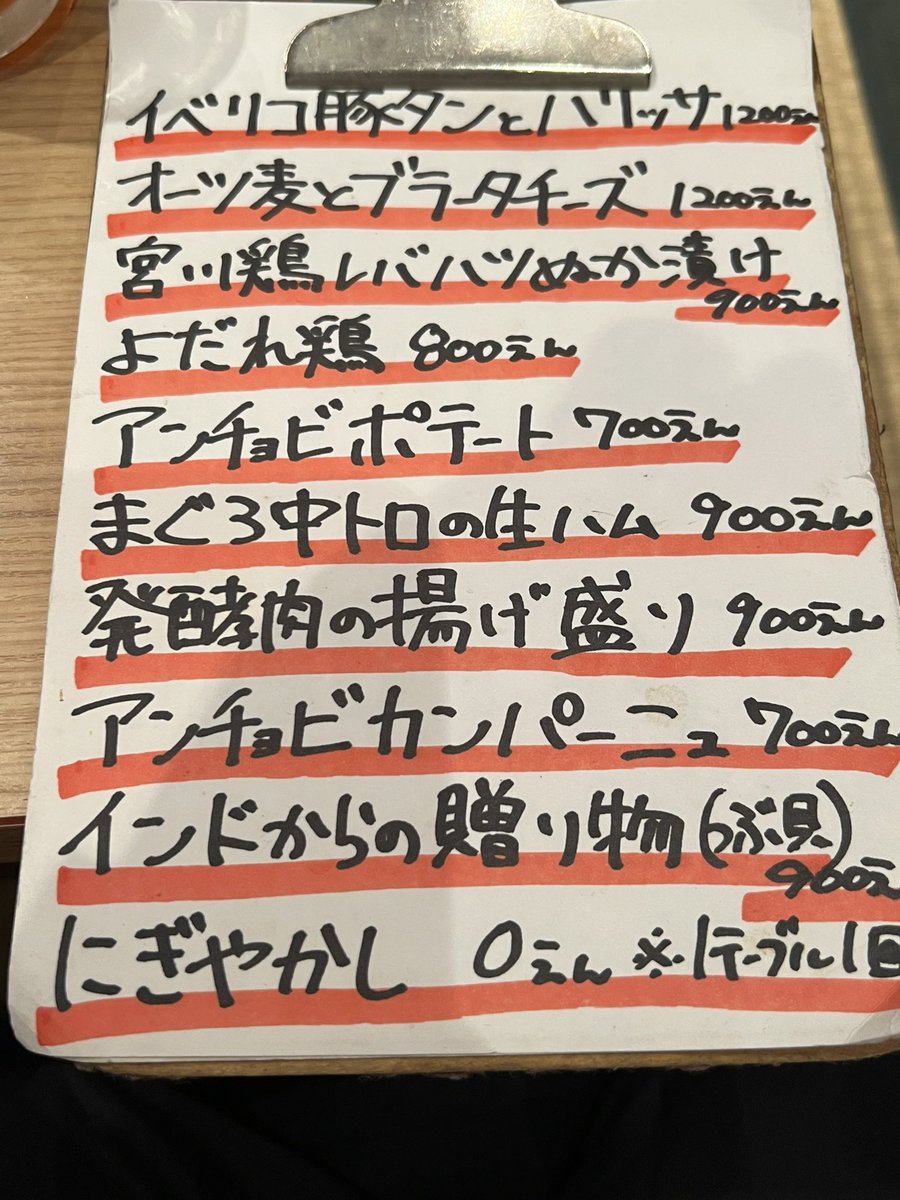 イベリコ豚タンとハリッサ 1200えん
オーツ麦とブラータチーズ 1200えん
宮川鶏レバハツぬか漬け
900えん
よだれ鶏 800えん
アンチョビポテート 700えん
まぐろ中トロの生ハム 900えん
発酵肉の揚げ盛り 900えん
アンチョビカンパーニュ 700えん
インドからの贈り物(つぶ貝)
900え
にぎやかし 0えん ※1テーブル1回